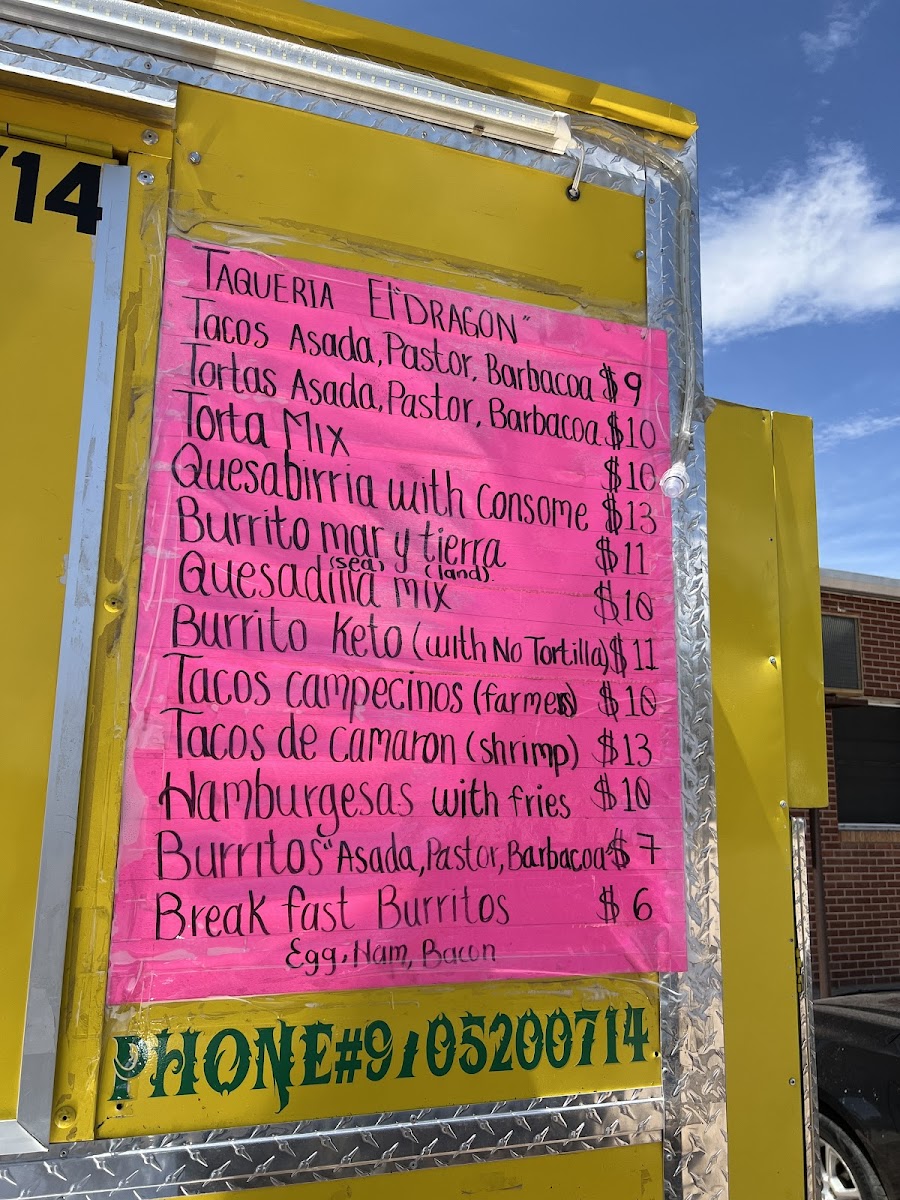 714
TAQUERIA El "DRAGON"
Tacos Asada, Pastor, Barbacoa $9
Tortas Asada, Pastor, Barbacoa $10
Torta Mix $10
Quesabirria with Consome $13
Burrito mar y tierra $11
(sea) (land)
Quesadilla mix $10
Burrito Keto (with No Tortilla) $11
Tacos campecinos (farmers) $10
Tacos de camaron (shrimp) $13
Hamburgesas with fries $10
Burritos "Asada, Pastor, Barbacoa" $7
Break fast Burritos $6
Egg, Ham, Bacon
PHONE#9105200714